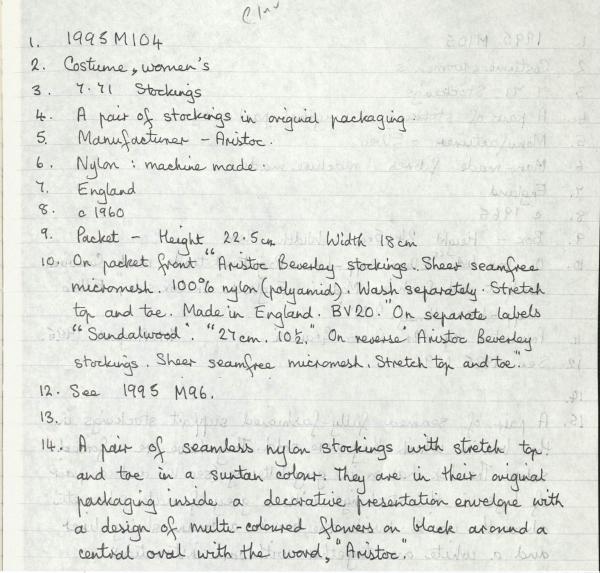 1. 1995 M104
2. Costume, women's
3. 7.71 Stockings
4. A pair of stockings in original packaging
5. Manufacturer - Aristoc.
6. Nylon : machine made.
7. England
8. c 1960
9. Packet - Height 22.5cm Width 18cm
10. On packet front "Aristoc Beverley stockings. Sheer seamfree
micromesh. 100% nylon (polyamid). Wash separately. Stretch
top and toe. Made in England. BV20." On separate labels
"Sandalwood". "27cm. 10½." On reverse "Aristoc Beverley
stockings. Sheer seamfree micromesh. Stretch top and toe"
12. See 1995 M96.
13.
14. A pair of seamless nylon stockings with stretch top
and toe in a suntan colour. They are in their original
packaging inside a decorative presentation envelope with
a design of multi-coloured flowers on black around a
central oval with the word, "Aristoc".